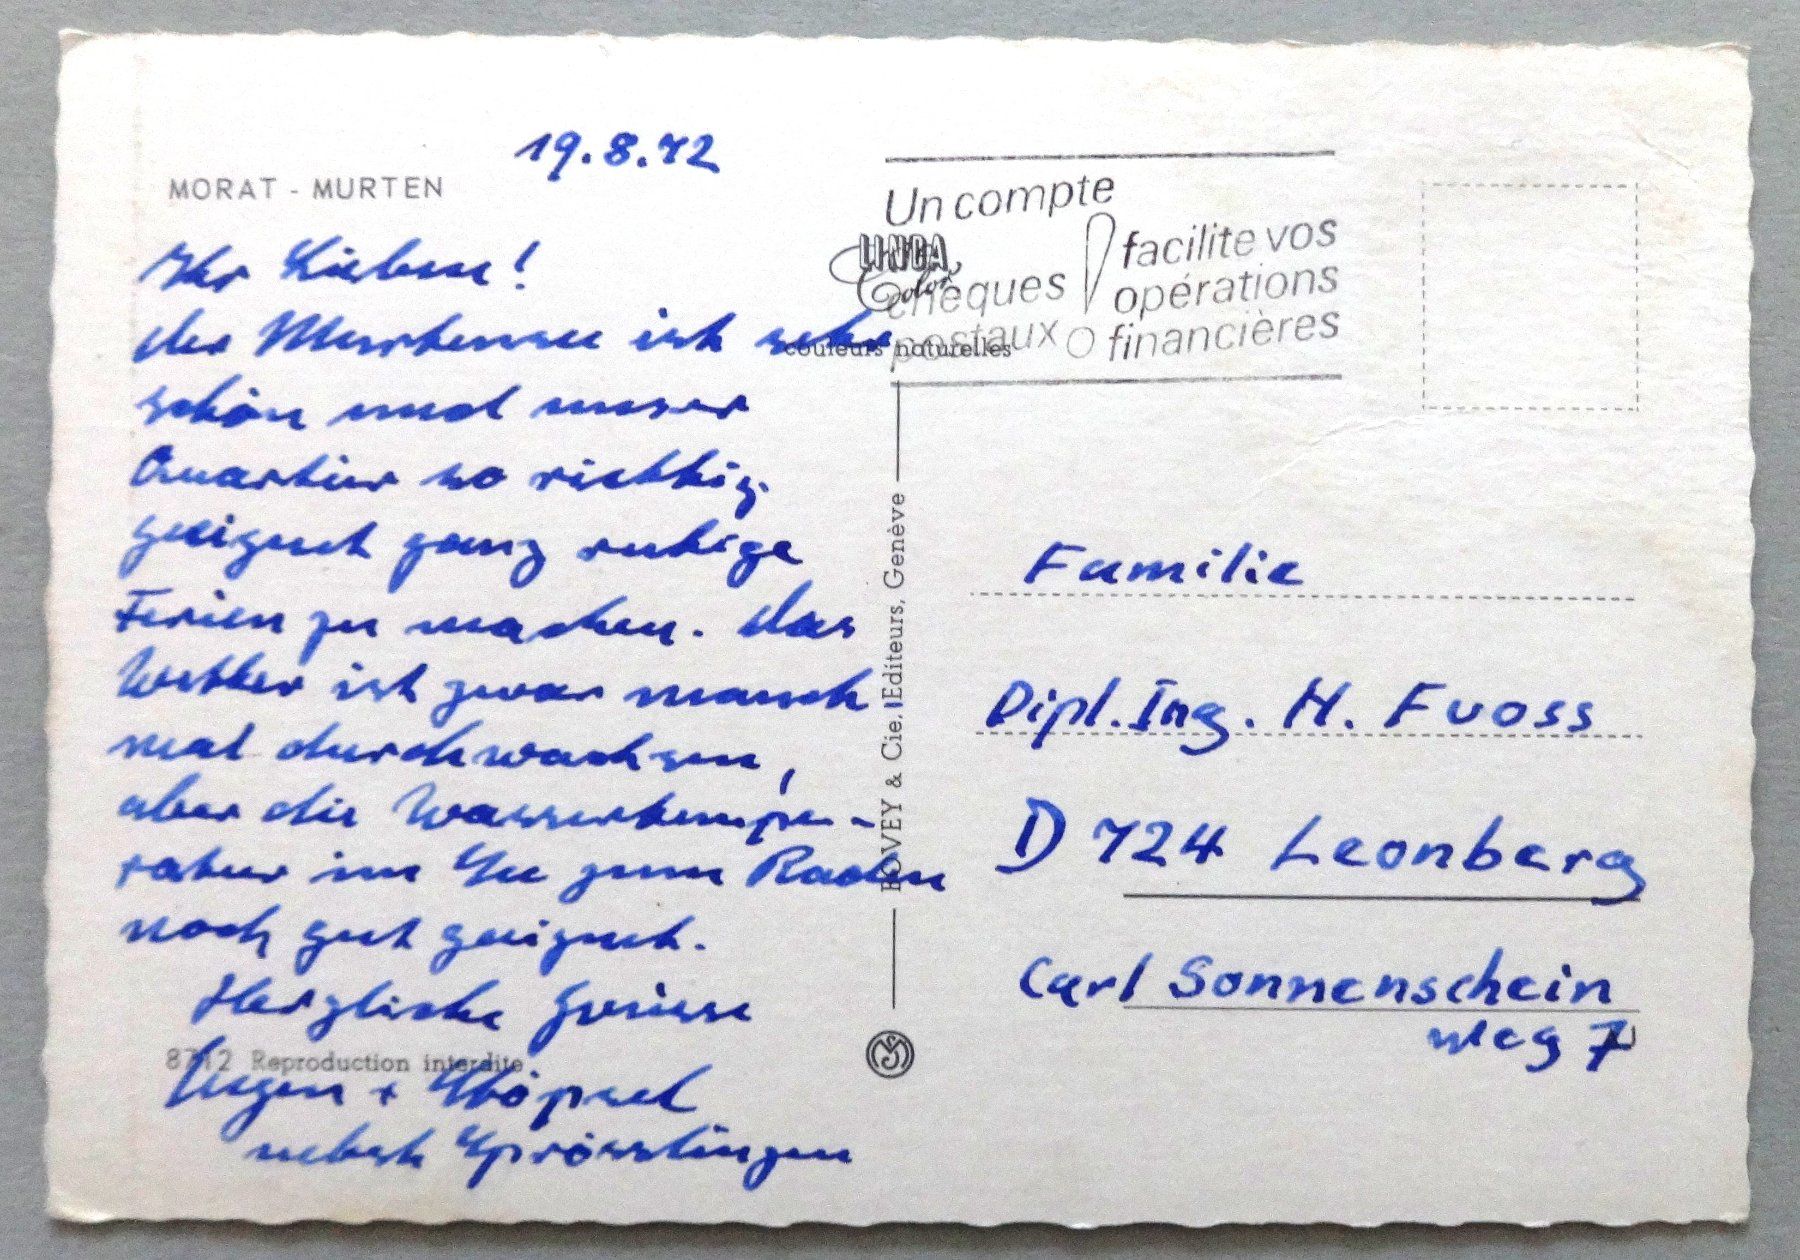 19.8.72
MORAT - MURTEN
Ihr Lieben!
der Murtensee ist sehr
schön und unser
Quartier so richtig
geeignet ganz ruhige
Ferien zu machen. Das
Wetter ist zwar manch
mal durchwachsen,
aber die Wassertempe-
ratur im See zum Baden
noch gut geeignet.
Herzliche Grüsse
8712 Reproduction interdite
Eugen + Stöpsel
nebst Sprösslingen
Un compte
chèques
postaux
facilite vos
opérations
financières
LINDA
Color
couleurs naturelles
BOVEY & Cie, Editeurs, Genève
Familie
Dipl.Ing. H. Fuoss
D 724 Leonberg
Carl Sonnenschein
weg 7